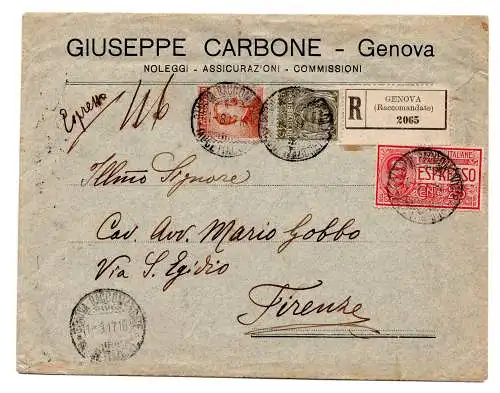 GIUSEPPE CARBONE - Genova
NOLEGGI - ASSICURAZIONI - COMMISSIONI
Espresso
R
GENOVA
(Raccomandate)
2065
ESPRESSO
Illmo Signore
Cav. Avv. Mario Gobbo
Via S. Egidio
Firenze
GENOVA RACCOMANDATE
1-3.17.16